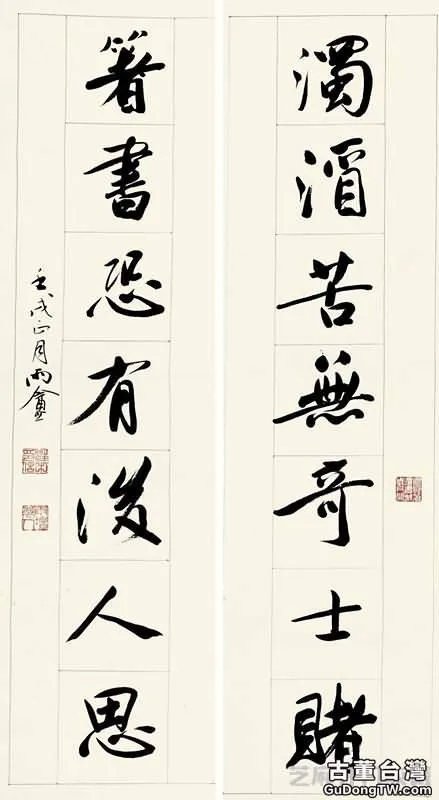 濁酒苦無奇士賭
箸書恐有後人思
壬戌正月雨盦
古董台灣
GuDongTW.com